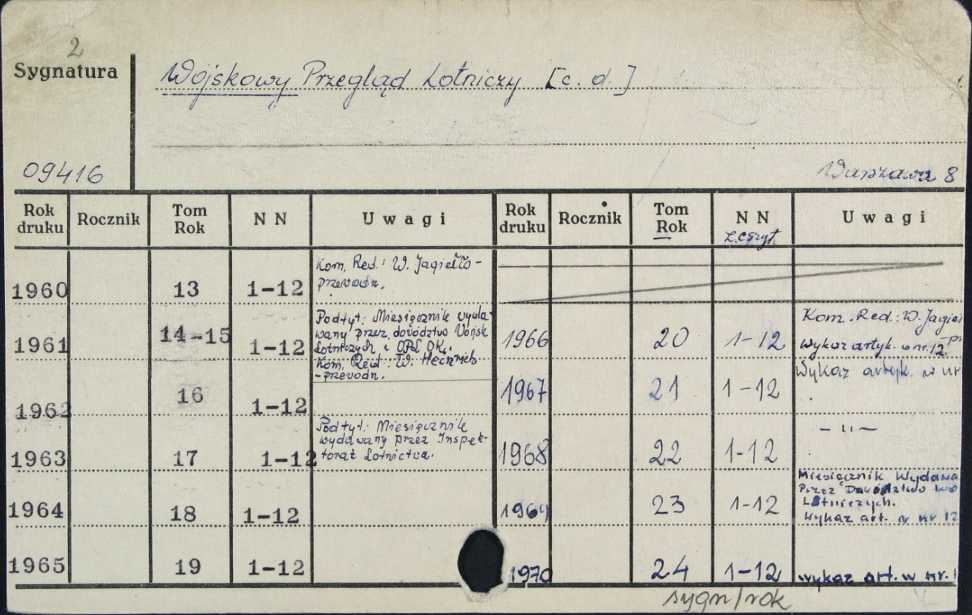 2
Sygnatura
Wojskowy Przegląd Lotniczy [c. d.]
09416
Warszawa 8
Rok druku Rocznik Tom Rok N N Uwagi Rok druku Rocznik Tom Rok N N zeszyt. Uwagi
1960 13 1-12 Kom. Red: W. Jagiełło-
przewodn.
1961 14-15 1-12 Podtyt.: Miesięcznik wyda-
wany przez dowództwo Wojsk
Lotniczych i OPL OK.
Kom. Red: W.
-przewodn.
1962 16 1-12
1963 17 1-12 Podtyt.: Miesięcznik
wydawany przez Inspek-
torat Lotnictwa.
1964 18 1-12
1965 19 1-12
1966 20 1-12 Kom. Red: W. Jagieł
Wykaz artyk. w nr. 12
1967 21 1-12 Wykaz artyk. w nr
1968 22 1-12 - " -
1969 23 1-12 Miesięcznik Wydawa
Przez Dowództwo Wo
Lotniczych.
Wykaz art. w nr 12
1970 24 1-12 wykaz art. w nr. 1
sygn/rok